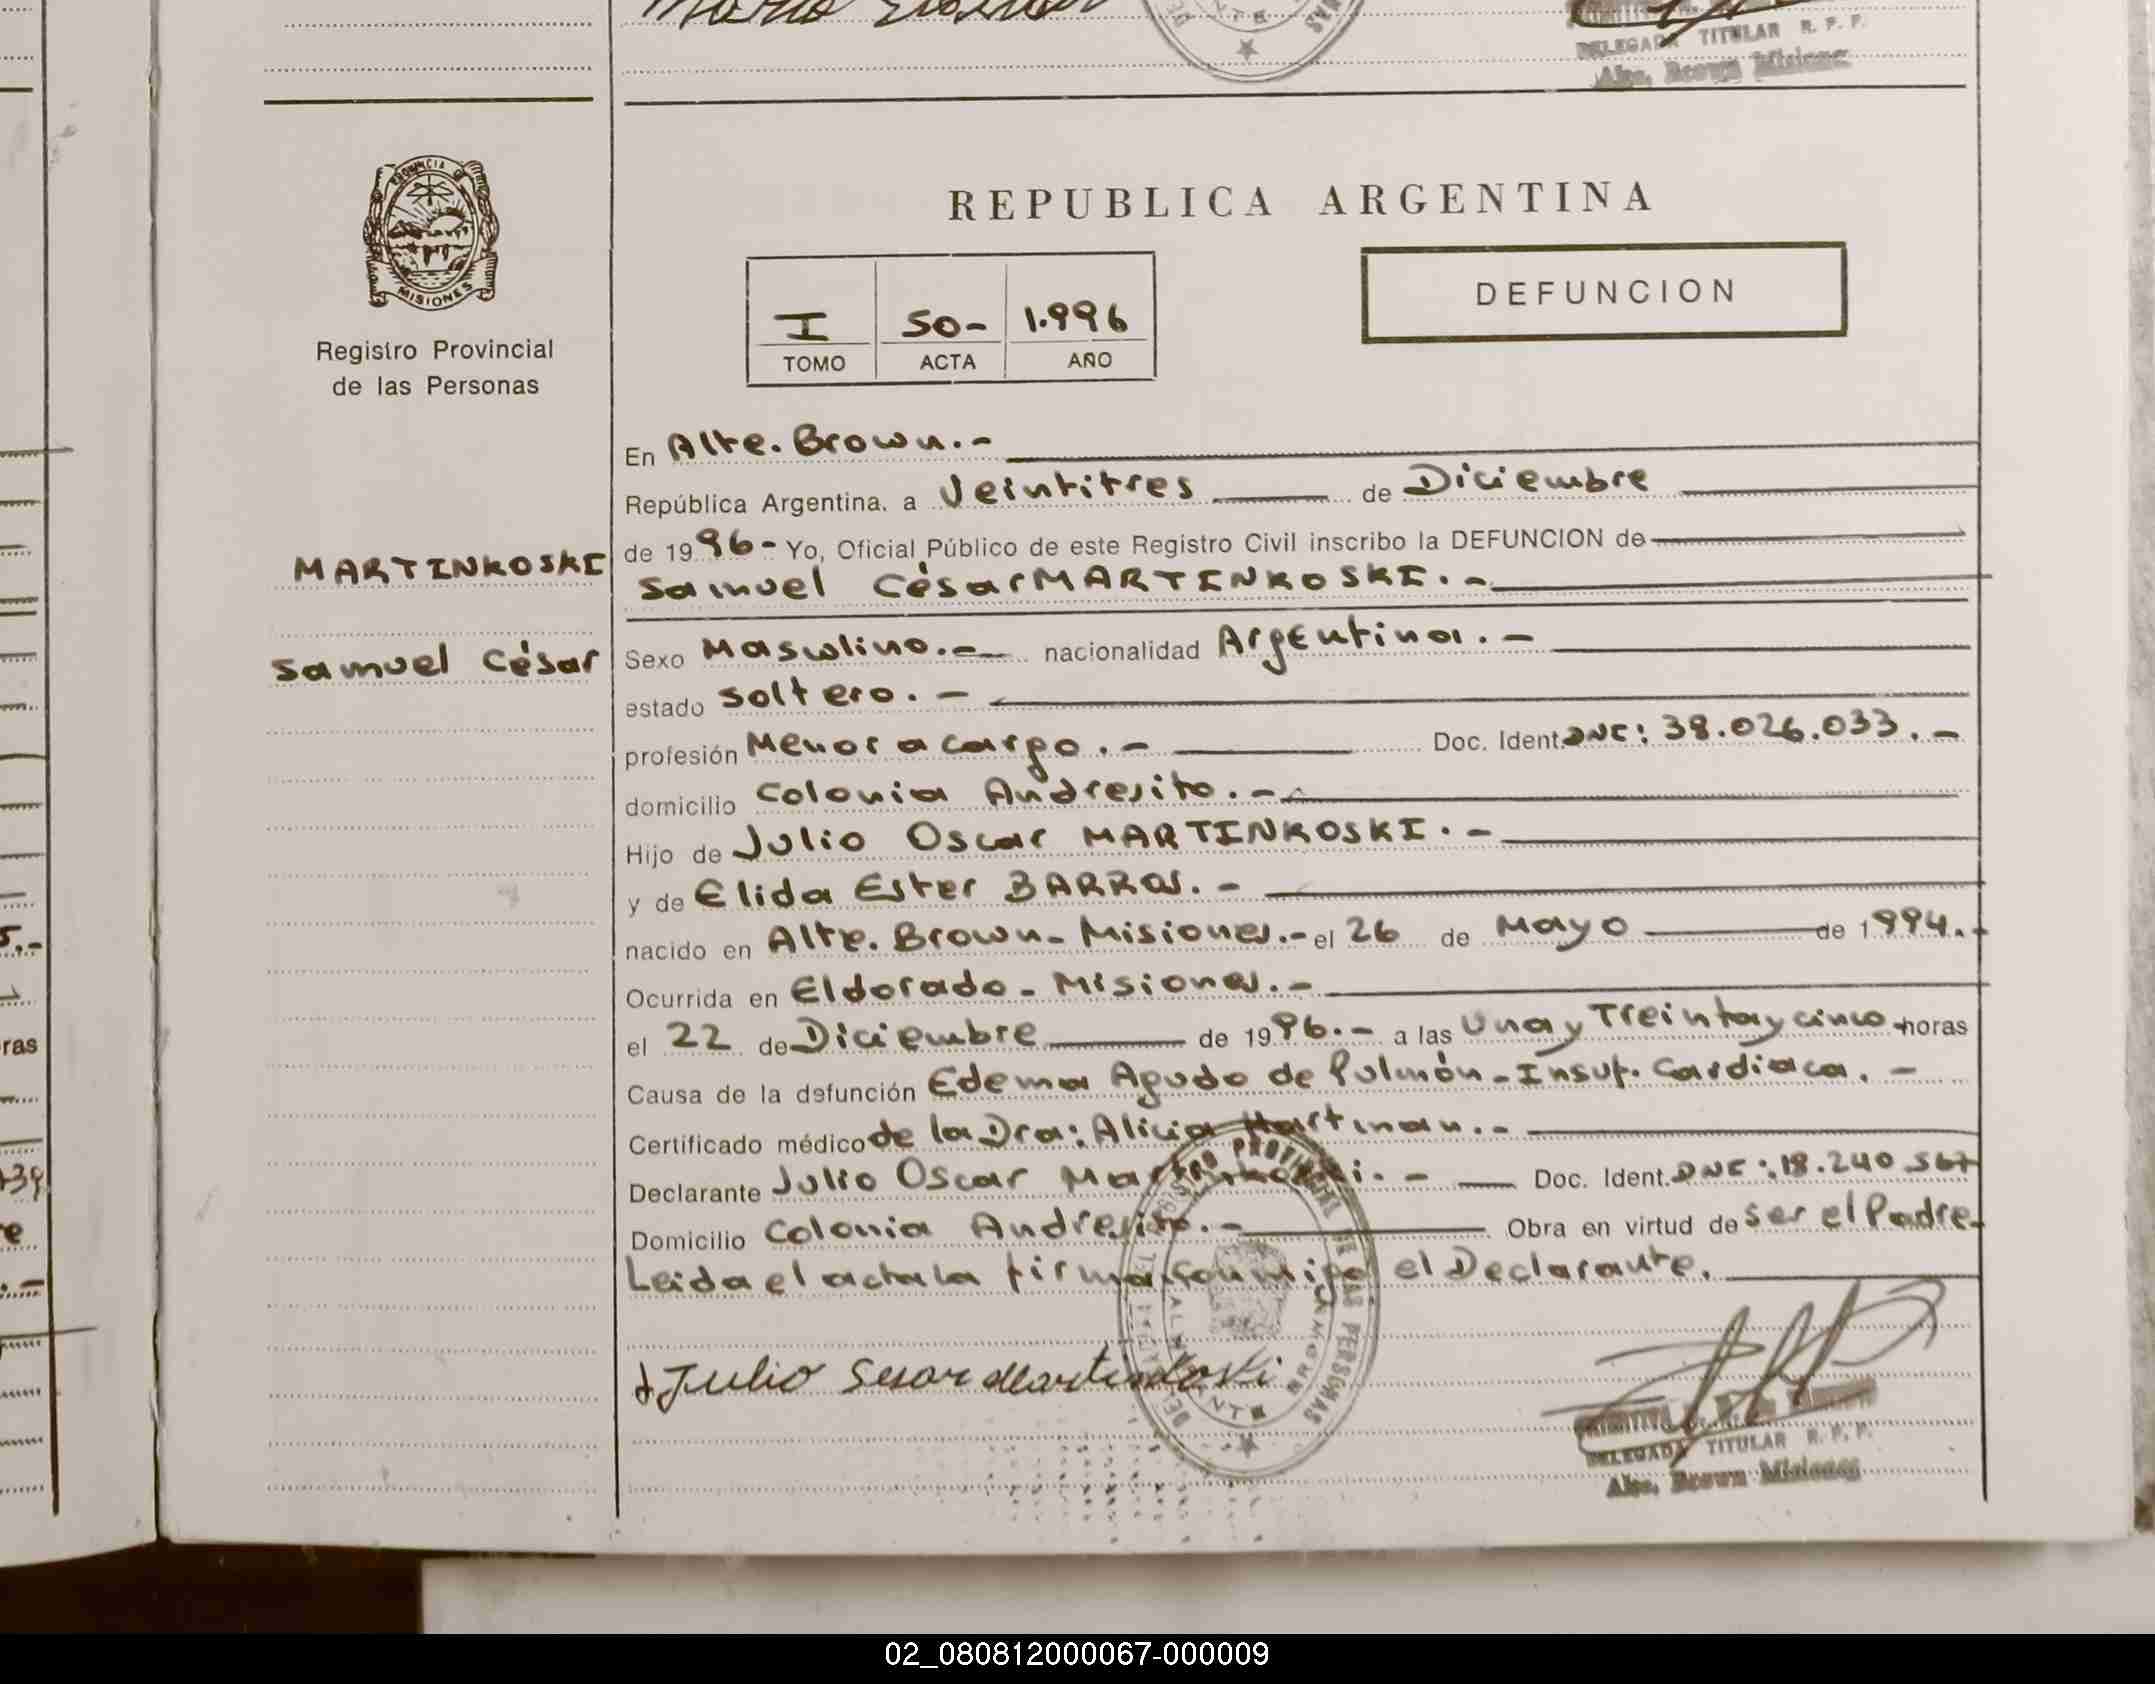 DELEGADA TITULAR R. P. P.
Alte. Brown Misiones
PROVINCIA DE
MISIONES
Registro Provincial
de las Personas
REPUBLICA ARGENTINA
DEFUNCION
I 50- 1.996
TOMO ACTA AÑO
MARTINKOSKI
Samuel César
En Alte. Brown.-
República Argentina, a Veintitres de Diciembre
de 1996- Yo, Oficial Público de este Registro Civil inscribo la DEFUNCION de
Samuel César MARTINKOSKI.-
Sexo Masculino.- nacionalidad Argentina.-
estado Soltero.-
profesión Menor a cargo.- Doc. Ident. DNI: 38.026.033.-
domicilio Colonia Andresito.-
Hijo de Julio Oscar MARTINKOSKI.-
y de Elida Ester BARROS.-
nacido en Alte. Brown- Misiones.- el 26 de Mayo de 1994.-
Ocurrida en Eldorado- Misiones.-
el 22 de Diciembre de 1996.- a las Una y Treinta y cinco horas
Causa de la defunción Edema Agudo de Pulmón- Insuf. Cardiaca.-
Certificado médico de la Dra: Alicia Hartman.-
Declarante Julio Oscar Martinkoski.- Doc. Ident. DNI: 18.240.567
Domicilio Colonia Andresito.- Obra en virtud de Ser el Padre-
Leida el acta la firma conmigo el Declarante.
Julio Sesar Martinkoski
REGISTRO PROVINCIAL DE LAS PERSONAS
ALMIRANTE BROWN
DELEGADA TITULAR R. P. P.
Alte. Brown Misiones
02_080812000067-000009